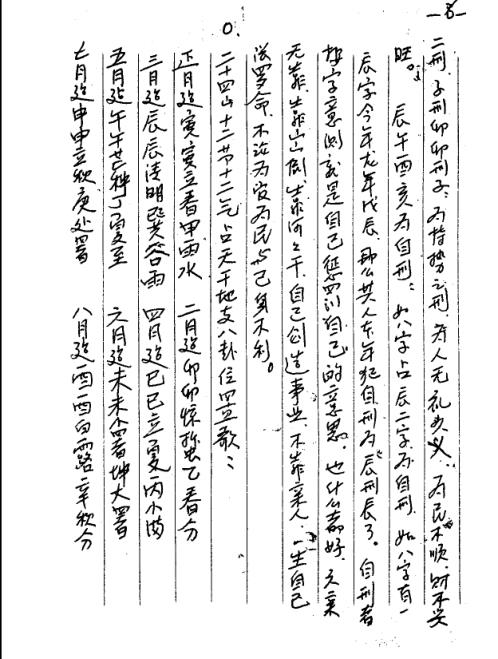 —8—
二刑、子刑卯卯刑子：为恃势之刑、为人无礼失义：为民不顺、财不安
旺。 辰午酉亥为自刑：如八字占辰二字为自刑、如八字有一
辰字今年龙年戊辰、那么其人在年犯自刑为“辰刑辰”了。自刑者
按字意测就是自己惩罚自己的意思、也什么都好、六亲
无靠、靠山山倒靠河河干、自己创造事业、不靠亲人、一生自己
没罗命、不论为官为民与己身不利。
二十四山十二节十二气占天干地支八卦位置歌：
正月建寅寅立春甲雨水 二月建卯卯惊蛰乙春分
三月建辰辰清明巽谷雨 四月建巳巳立夏丙小满
五月建午午芒种丁夏至 六月建未未小暑坤大暑
七月建申申立秋庚处暑 八月建酉酉白露辛秋分